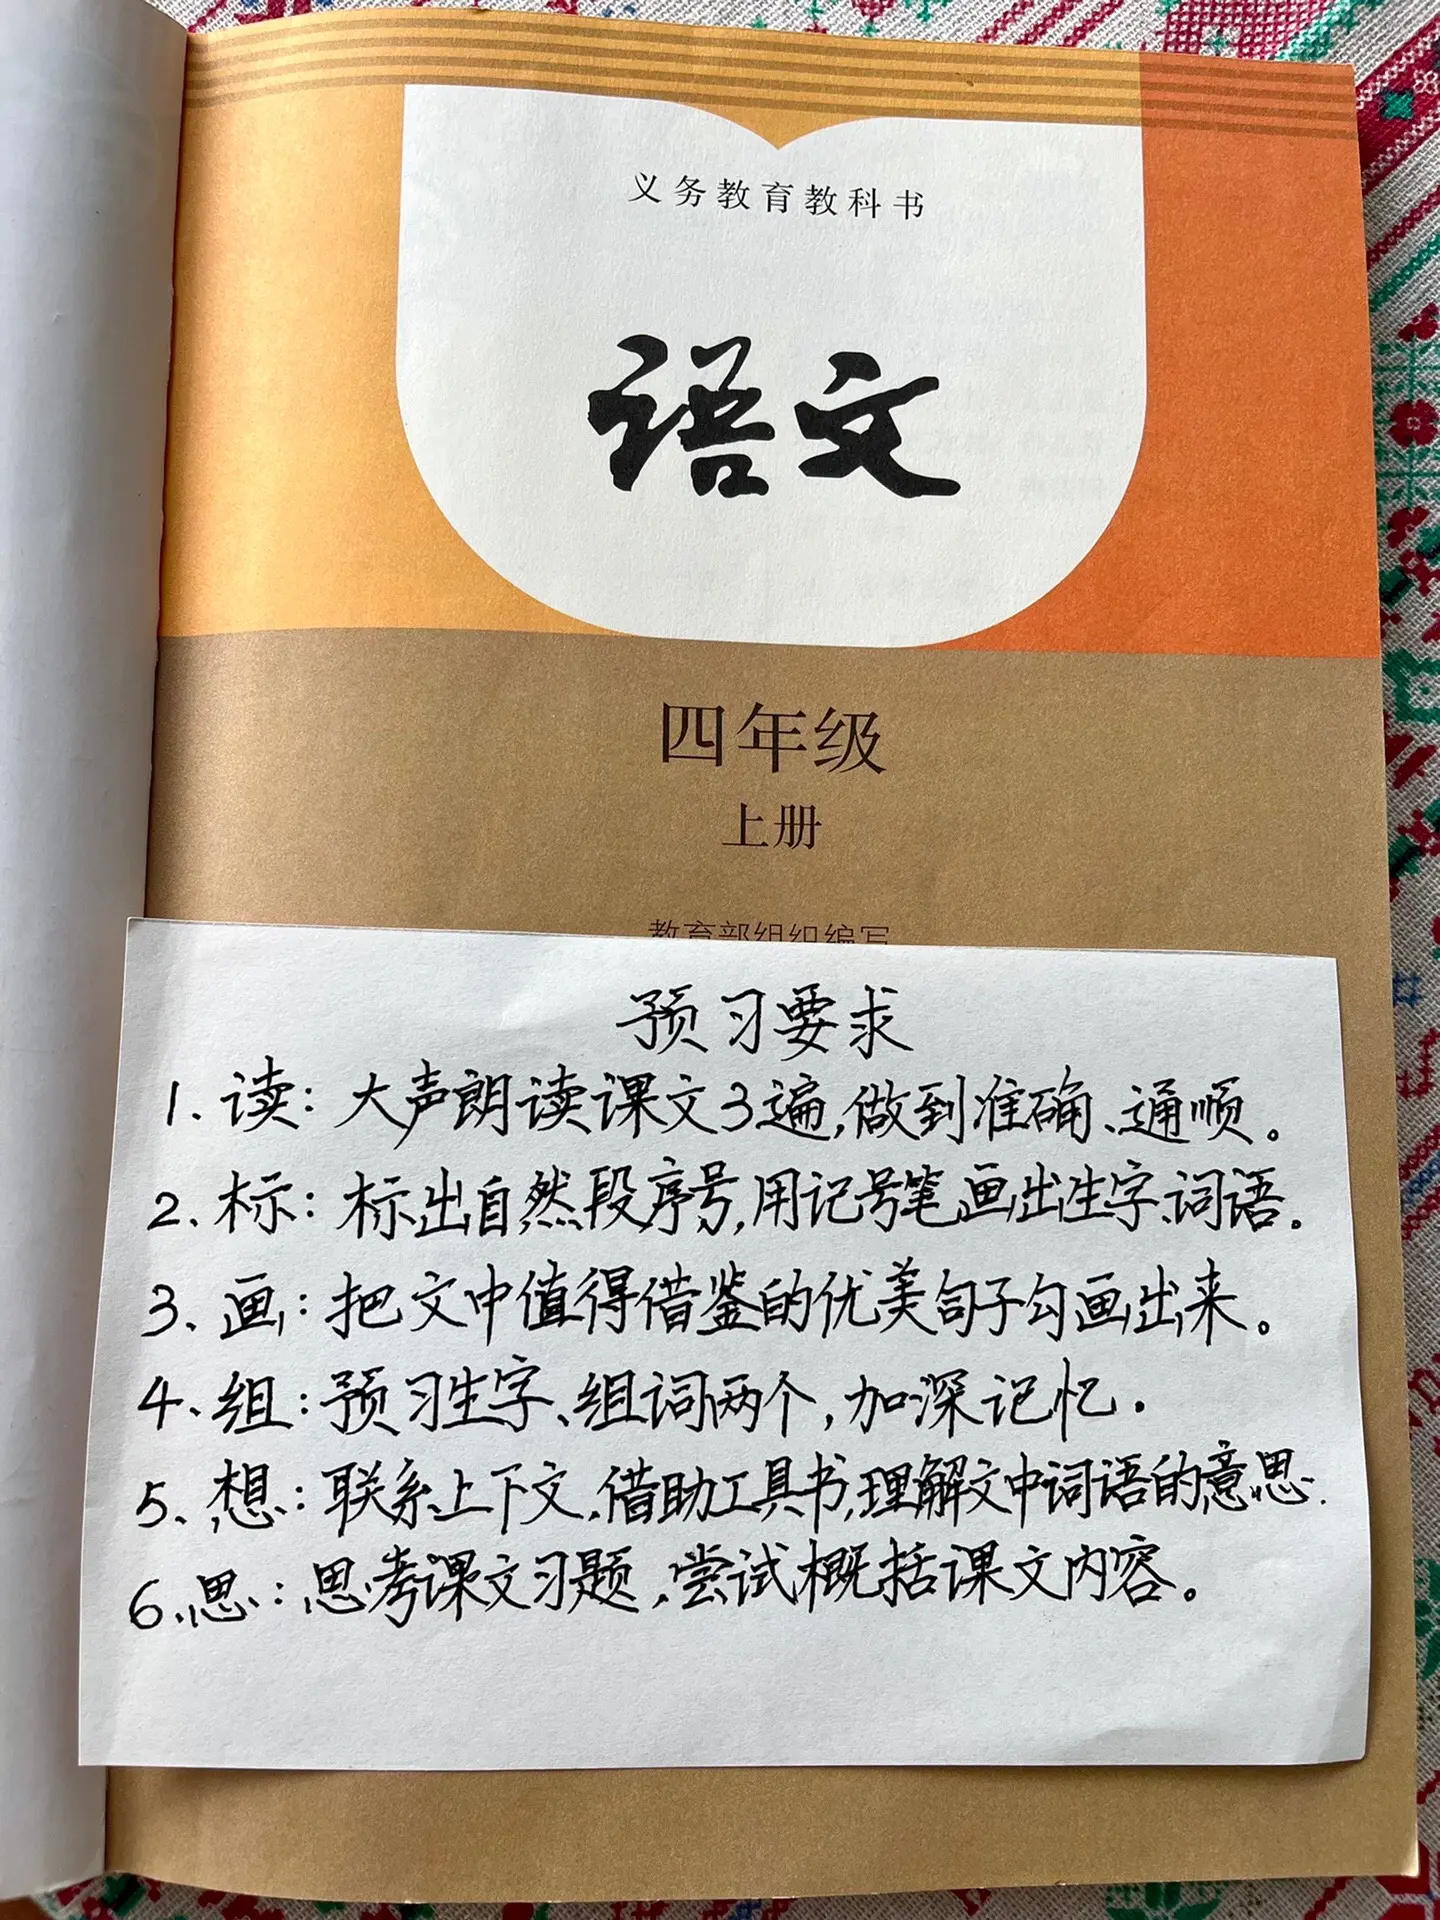 义务教育教科书
语文
四年级
上册
教育部组织编写
预习要求
1、读：大声朗读课文3遍，做到准确、通顺。
2、标：标出自然段序号，用记号笔画出生字、词语。
3、画：把文中值得借鉴的优美句子勾画出来。
4、组：预习生字、组词两个，加深记忆.
5、想：联系上下文，借助工具书，理解文中词语的意思.
6、思：思考课文习题，尝试概括课文内容。